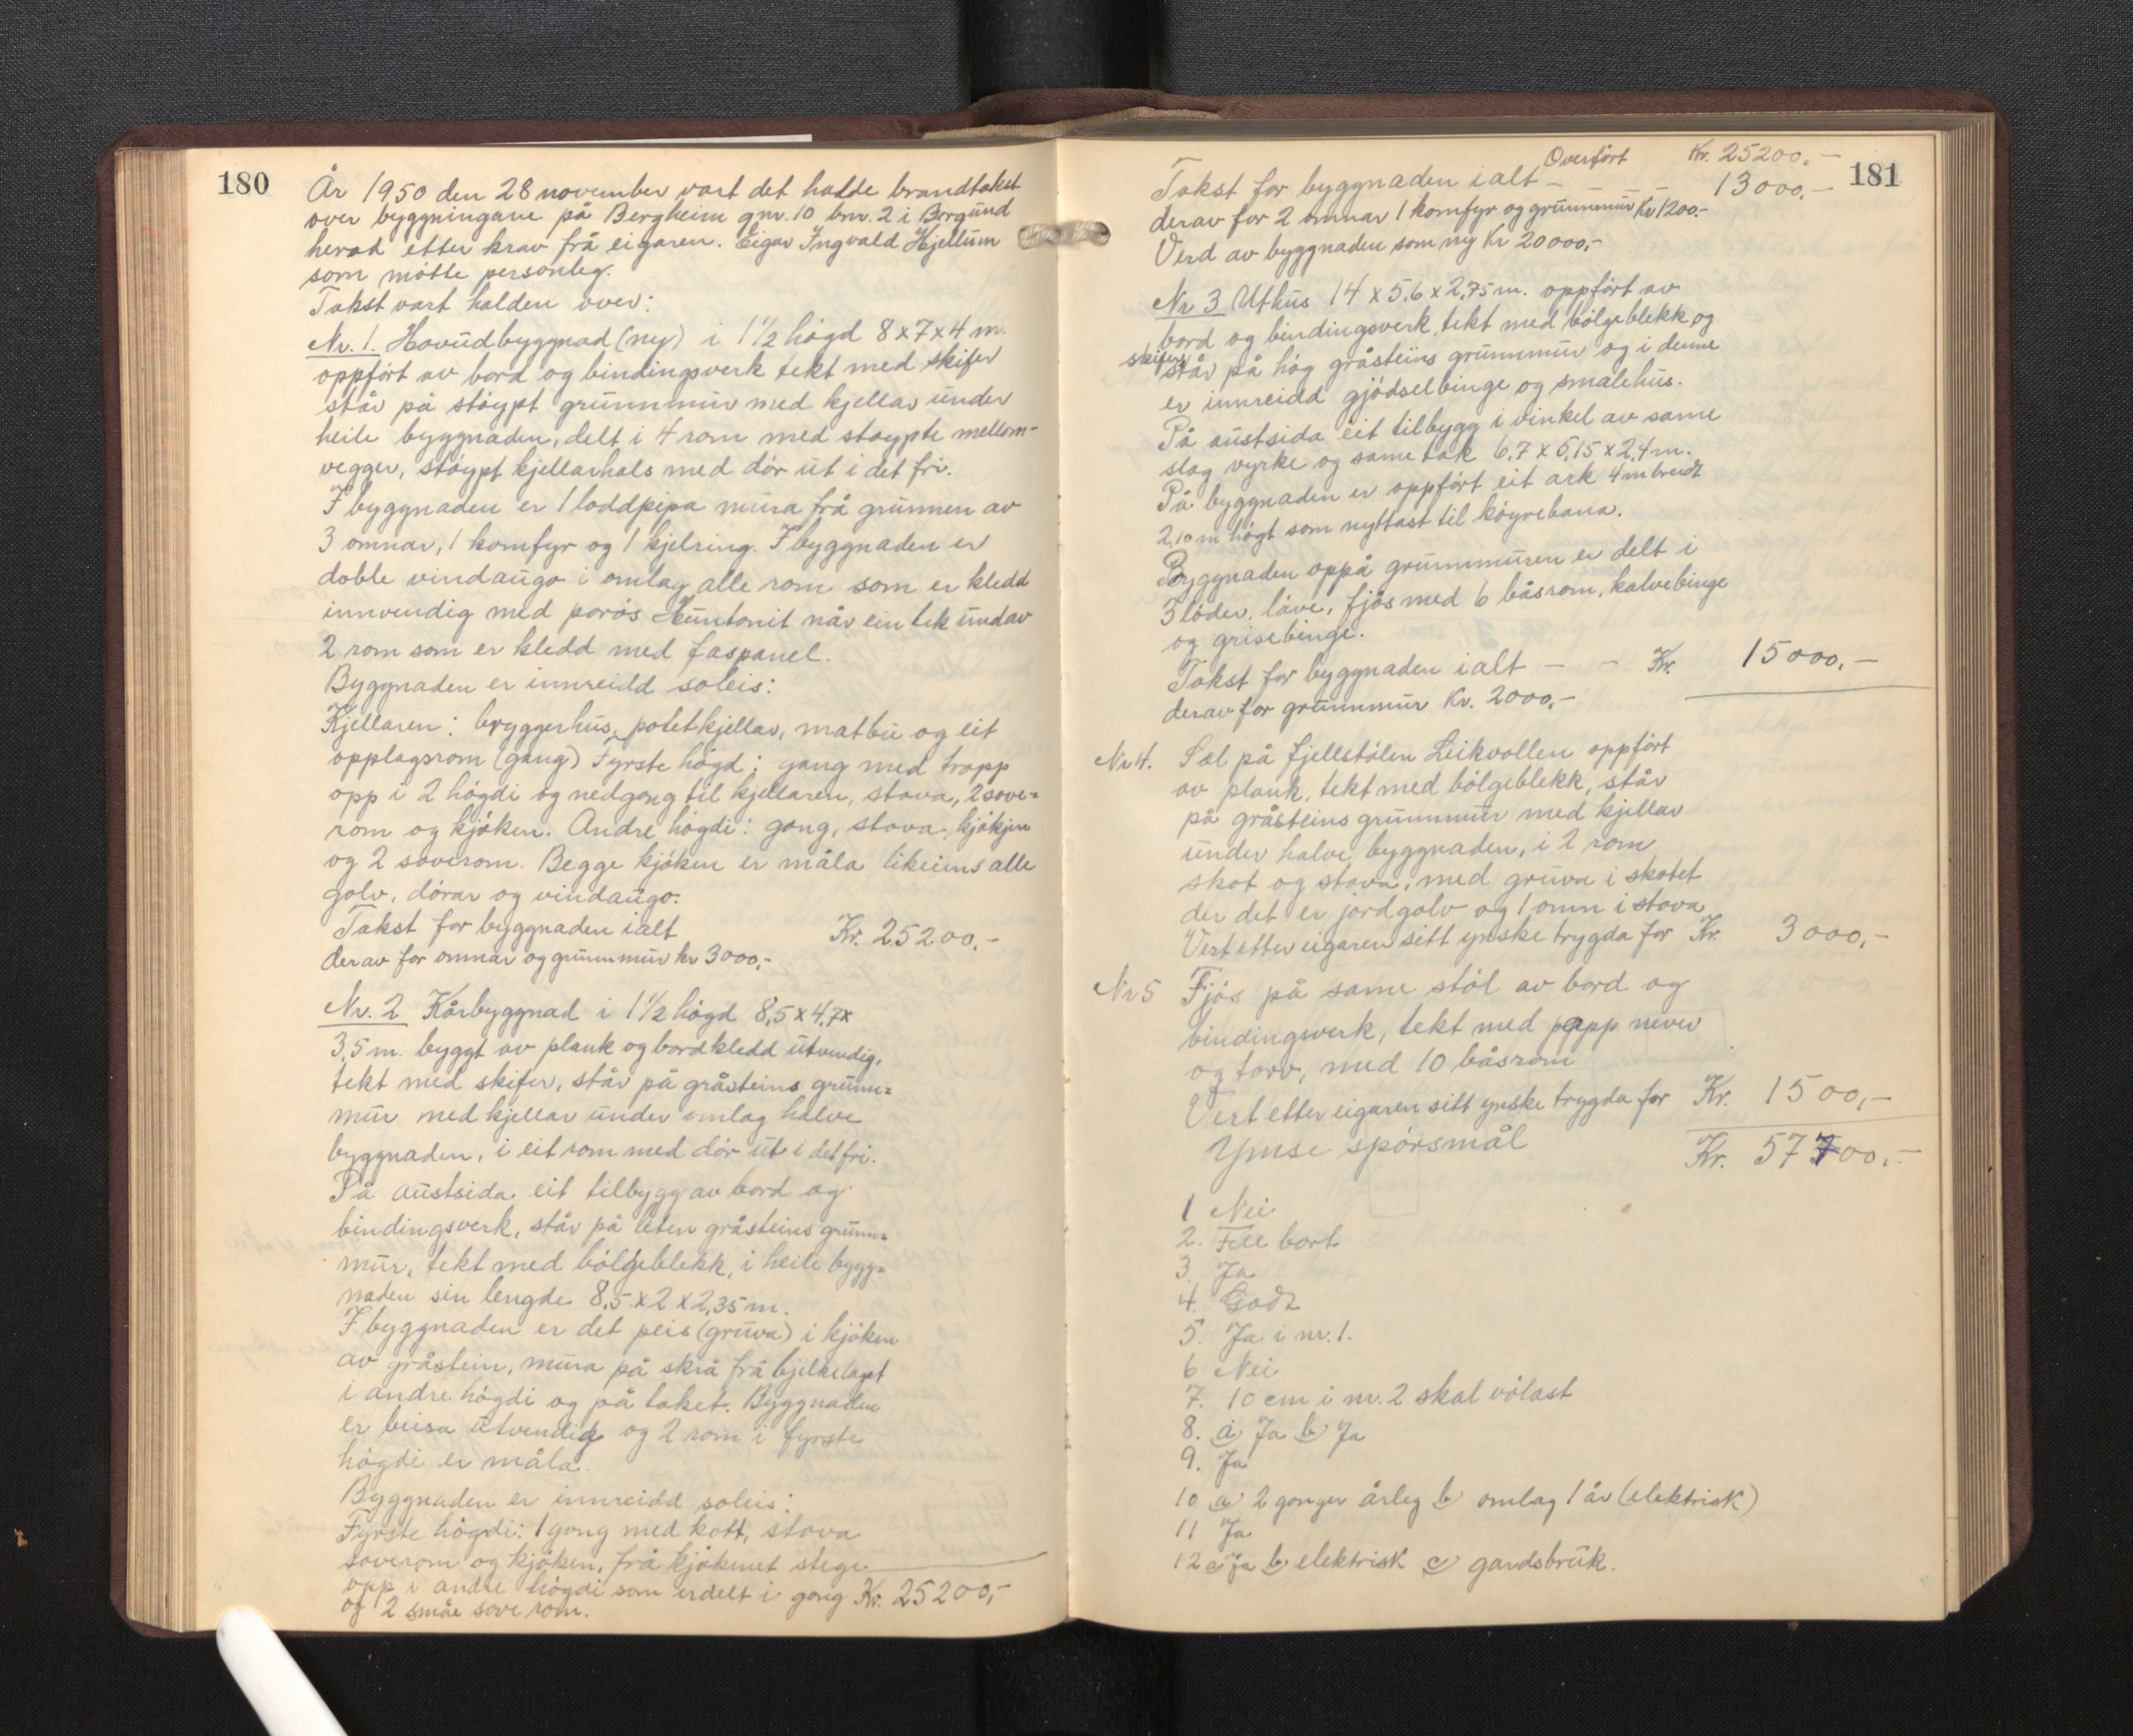 180
År 1950 den 28 november vart det halde brandtakst
over byggningane på Bergheim gnr. 10 bnr. 2 i Borgund
herad etter krav frå eigaren. Eigar Ingvald Hjellum
som møtte personleg.
Takst vart halden over:
Nr. 1. Hovudbyggnad (ny) i 1 1/2 högd 8 x 7 x 4 m.
oppfört av bord og bindingsverk tekt med skifer
står på stöypt grunnmur med kjellar under
heile byggnaden, delt i 4 rom med stoypte mellom-
vegger, stöypt kjellarhals med dör ut i det fri.
I byggnaden er 1 loddpipa mura frå grunnen av
3 omnar, 1 komfyr og 1 kjelring. I byggnaden er
doble vindaugo i omlag alle rom som er kledd
innvendig med porös Huntonit når ein tek undav
2 rom som er kledd med faspanel.
Byggnaden er innreidd soleis:
Kjellaren: bryggerhus, potetkjellar, matbu og eit
opplagsrom (gang) Fyrste högd: gang med trapp
opp i 2 högdi og nedgong til kjellaren, stova, 2 sove-
rom og kjöken. Andre högdi: gong, stova, kjökjen
og 2 soverom. Begge kjöken er måla likeeins alle
golv, dörar og vindaugo.
Takst for byggnaden ialt Kr. 25200,-
derav for omnar og grunnmur kr 3000,-
Nr. 2 Kårbyggnad i 1 1/2 högd 8,5 x 4,7 x
3,5 m. byggt av plank og bordkledd utvendig,
tekt med skifer, står på gråsteins grunn-
mur med kjellar under omlag halve
byggnaden, i eit rom med dör ut i det fri.
På austsida eit tilbygg av bord og
bindingsverk, står på liten gråsteins grunn-
mur, tekt med bölgeblekk, i heile bygg-
naden sin lengde 8,5 x 2 x 2,35 m.
I byggnaden er det peis (gruva) i kjöken
av gråstein, mura på skrå frå bjelkelaget
i andre högdi og på taket. Byggnaden
er beisa utvendig og 2 rom i fyrste
högdi er måla.
Byggnaden er innreidd soleis:
Fyrste högdi: 1 gong med kott, stova
soverom og kjöken, frå kjökenet stege
opp i andre högdi som er delt i gong Kr. 25200,-
og 2 småe sove rom.
181
Overfört Kr. 25200,-
Takst for byggnaden ialt - - - - 13000,-
derav for 2 omnar 1 komfyr og grunnmur Kr 1200.-
Verd av byggnaden som ny Kr 20000,-
Nr 3 Uthus 14 x 5,6 x 2,75 m. oppfört av
bord og bindingsverk, tekt med bölgeblekk og
skifer står på hög gråsteins grunnmur og i denne
er innreidd gjödselbinge og smalehus.
På austsida eit tilbygg i vinkel av same
slag vyrke og same tak 6,7 x 6,15 x 2,4 m.
På byggnaden er oppfört eit ark 4 m breidt
2,10 m högt som nyttast til köyrebana.
Byggnaden oppå grunnmuren er delt i
3 löder, låve, fjös med 6 båsrom, kalvebinge
og grisebinge.
Takst for byggnaden ialt - - Kr. 15000,-
derav for grunnmur Kr. 2000,-
Nr 4. Sel på fjellstölen Leikvollen oppfört
av plank, tekt med bölgeblekk, står
på gråsteins grunnmur med kjellar
under halve byggnaden, i 2 rom
skot og stova, med gruva i skotet
der det er jordgolv og 1 omn i stova
Vert etter eigaren sitt ynske trygda for Kr. 3000,-
Nr 5 Fjös på same stöl av bord og
bindingsverk, tekt med papp never
og torv, med 10 båsrom
Vert etter eigaren sitt ynske trygda for Kr. 1500,-
Kr. 57700,-
Ymse spörsmål
1 Nei
2. Fell bort
3. Ja
4. Godt
5. Ja i nr. 1.
6 Nei
7. 10 cm i nr. 2 skal völast
8. a) Ja b) Ja
9. Ja
10 a) 2 gonger årleg b) omlag 1 år (elektrisk)
11 Ja
12 a) Ja b) elektrisk c) gardsbruk.